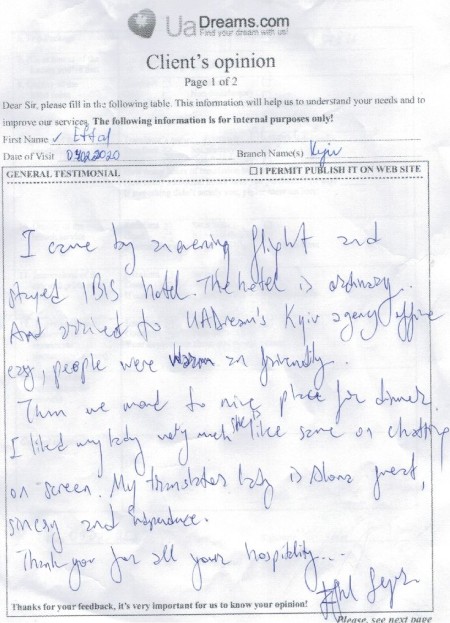 UaDreams.com
Find your dream with us!
Client's opinion
Page 1 of 2
Dear Sir, please fill in the following table. This information will help us to understand your needs and to
improve our services. The following information is for internal purposes only!
First Name Eftal
Date of Visit .02.2020 Branch Name(s) Kyiv
GENERAL TESTIMONIAL ☐ I PERMIT PUBLISH IT ON WEB SITE
I came by an evening flight and
stayed IBIS hotel. The hotel is ordinary.
And arrived to UADream's Kyiv agency office
easy, people were warm an friendly.
Then we went to nice place for dinner.
I liked my lady very much she is like same on chatting
on screen. My translater lady is great,
and
Thank you for all your hospitility...
Thanks for your feedback, it's very important for us to know your opinion!
Please, see next page